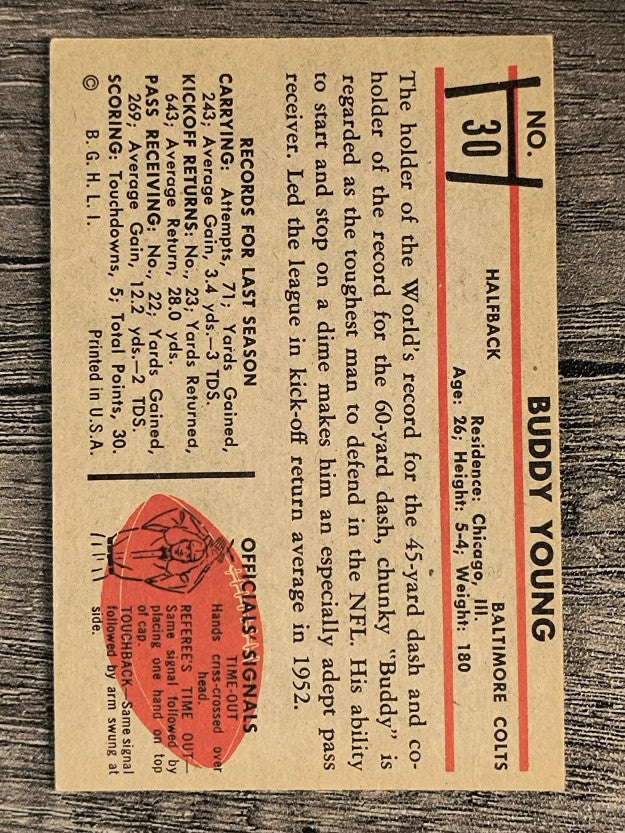 NO. 30
BUDDY YOUNG
HALFBACK
BALTIMORE COLTS
Residence: Chicago, Ill.
Age: 26; Height: 5-4; Weight: 180
The holder of the World's record for the 45-yard dash and co-
holder of the record for the 60-yard dash, chunky "Buddy" is
regarded as the toughest man to defend in the NFL. His ability
to start and stop on a dime makes him an especially adept pass
receiver. Led the league in kick-off return average in 1952.
RECORDS FOR LAST SEASON
CARRYING: Attempts, 71; Yards Gained,
243; Average Gain, 3.4 yds.—3 TDS.
KICKOFF RETURNS: No., 23; Yards Returned,
643; Average Return, 28.0 yds.
PASS RECEIVING: No., 22; Yards Gained,
269; Average Gain, 12.2 yds.—2 TDS.
SCORING: Touchdowns, 5; Total Points, 30.
© B. G. H. L. I.
Printed in U.S.A.
OFFICIALS' SIGNALS
TIME-OUT
Hands criss-crossed over
head.
REFEREE'S TIME OUT—
Same signal followed by
placing one hand on top
of cap.
TOUCHBACK—Same signal
followed by arm swung at
side.